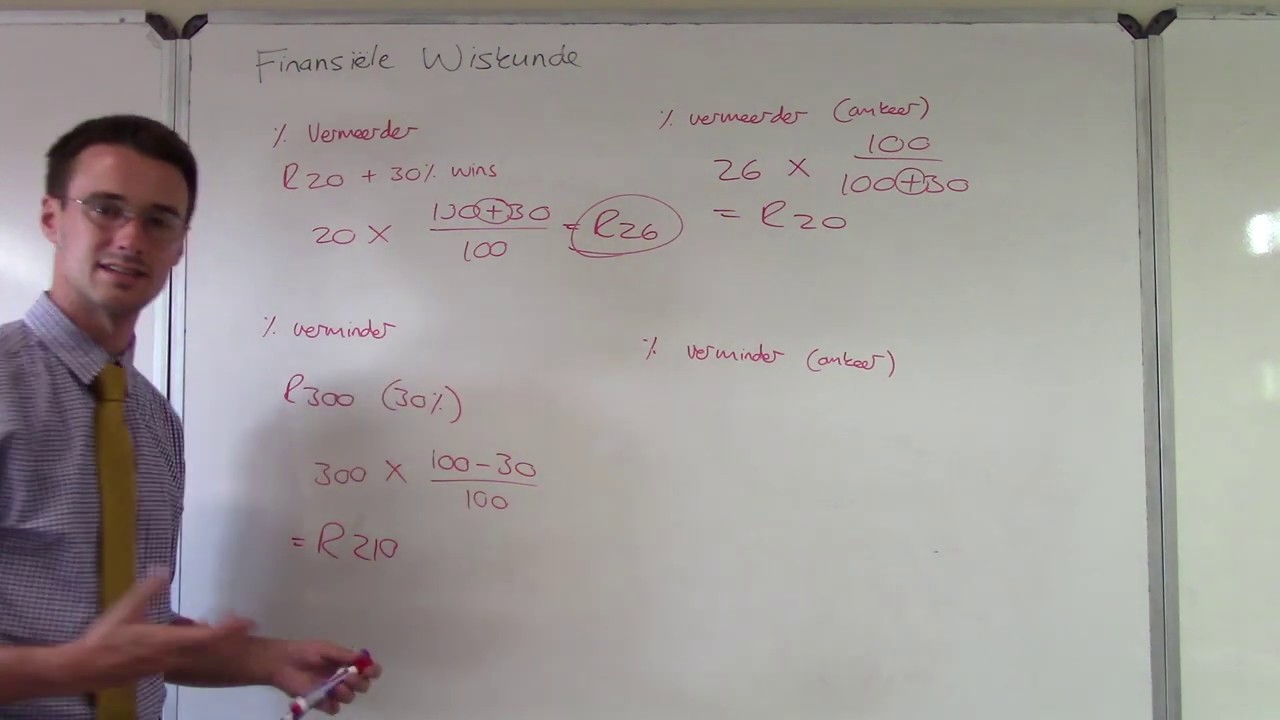 Finansiële Wiskunde
% Vermeerder
R20 + 30% wins
20 × (100+30)/100 = R26
% vermeerder (omkeer)
26 × 100/(100+30)
= R20
% verminder
R300 (30%)
300 × (100-30)/100
= R210
% verminder (omkeer)